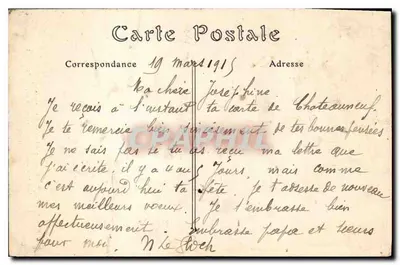 Carte Postale
Correspondance 19 mars 1915 Adresse
Ma chère Joséphine
Je reçois à l'instant ta carte de Chateauneuf
Je te remercie bien sincèrement de tes bonnes pensées
Je ne sais pas si tu as reçu ma lettre que
j'ai écrite il y a Jours, mais comme
c'est aujourd'hui ta fête je t'adresse de nouveau
mes meilleurs voeux. Je t'embrasse bien
affectueusement. Embrasse papa et soeurs
pour moi. N Le